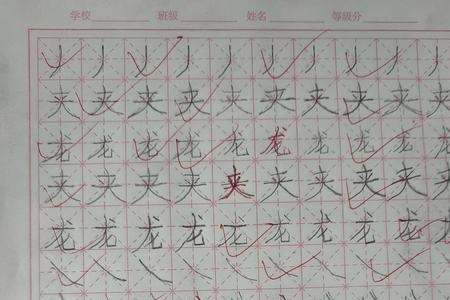 学校 班级 姓名 等级分
夹 夹 夹 夹 夹 夹 夹 夹 夹 夹
龙 龙 龙 龙 龙 龙 龙 龙 龙 龙
夹 夹 夹 夹 夹 夹 夹 夹 夹 夹
龙 龙 龙 龙 龙 龙 龙 龙 龙 龙